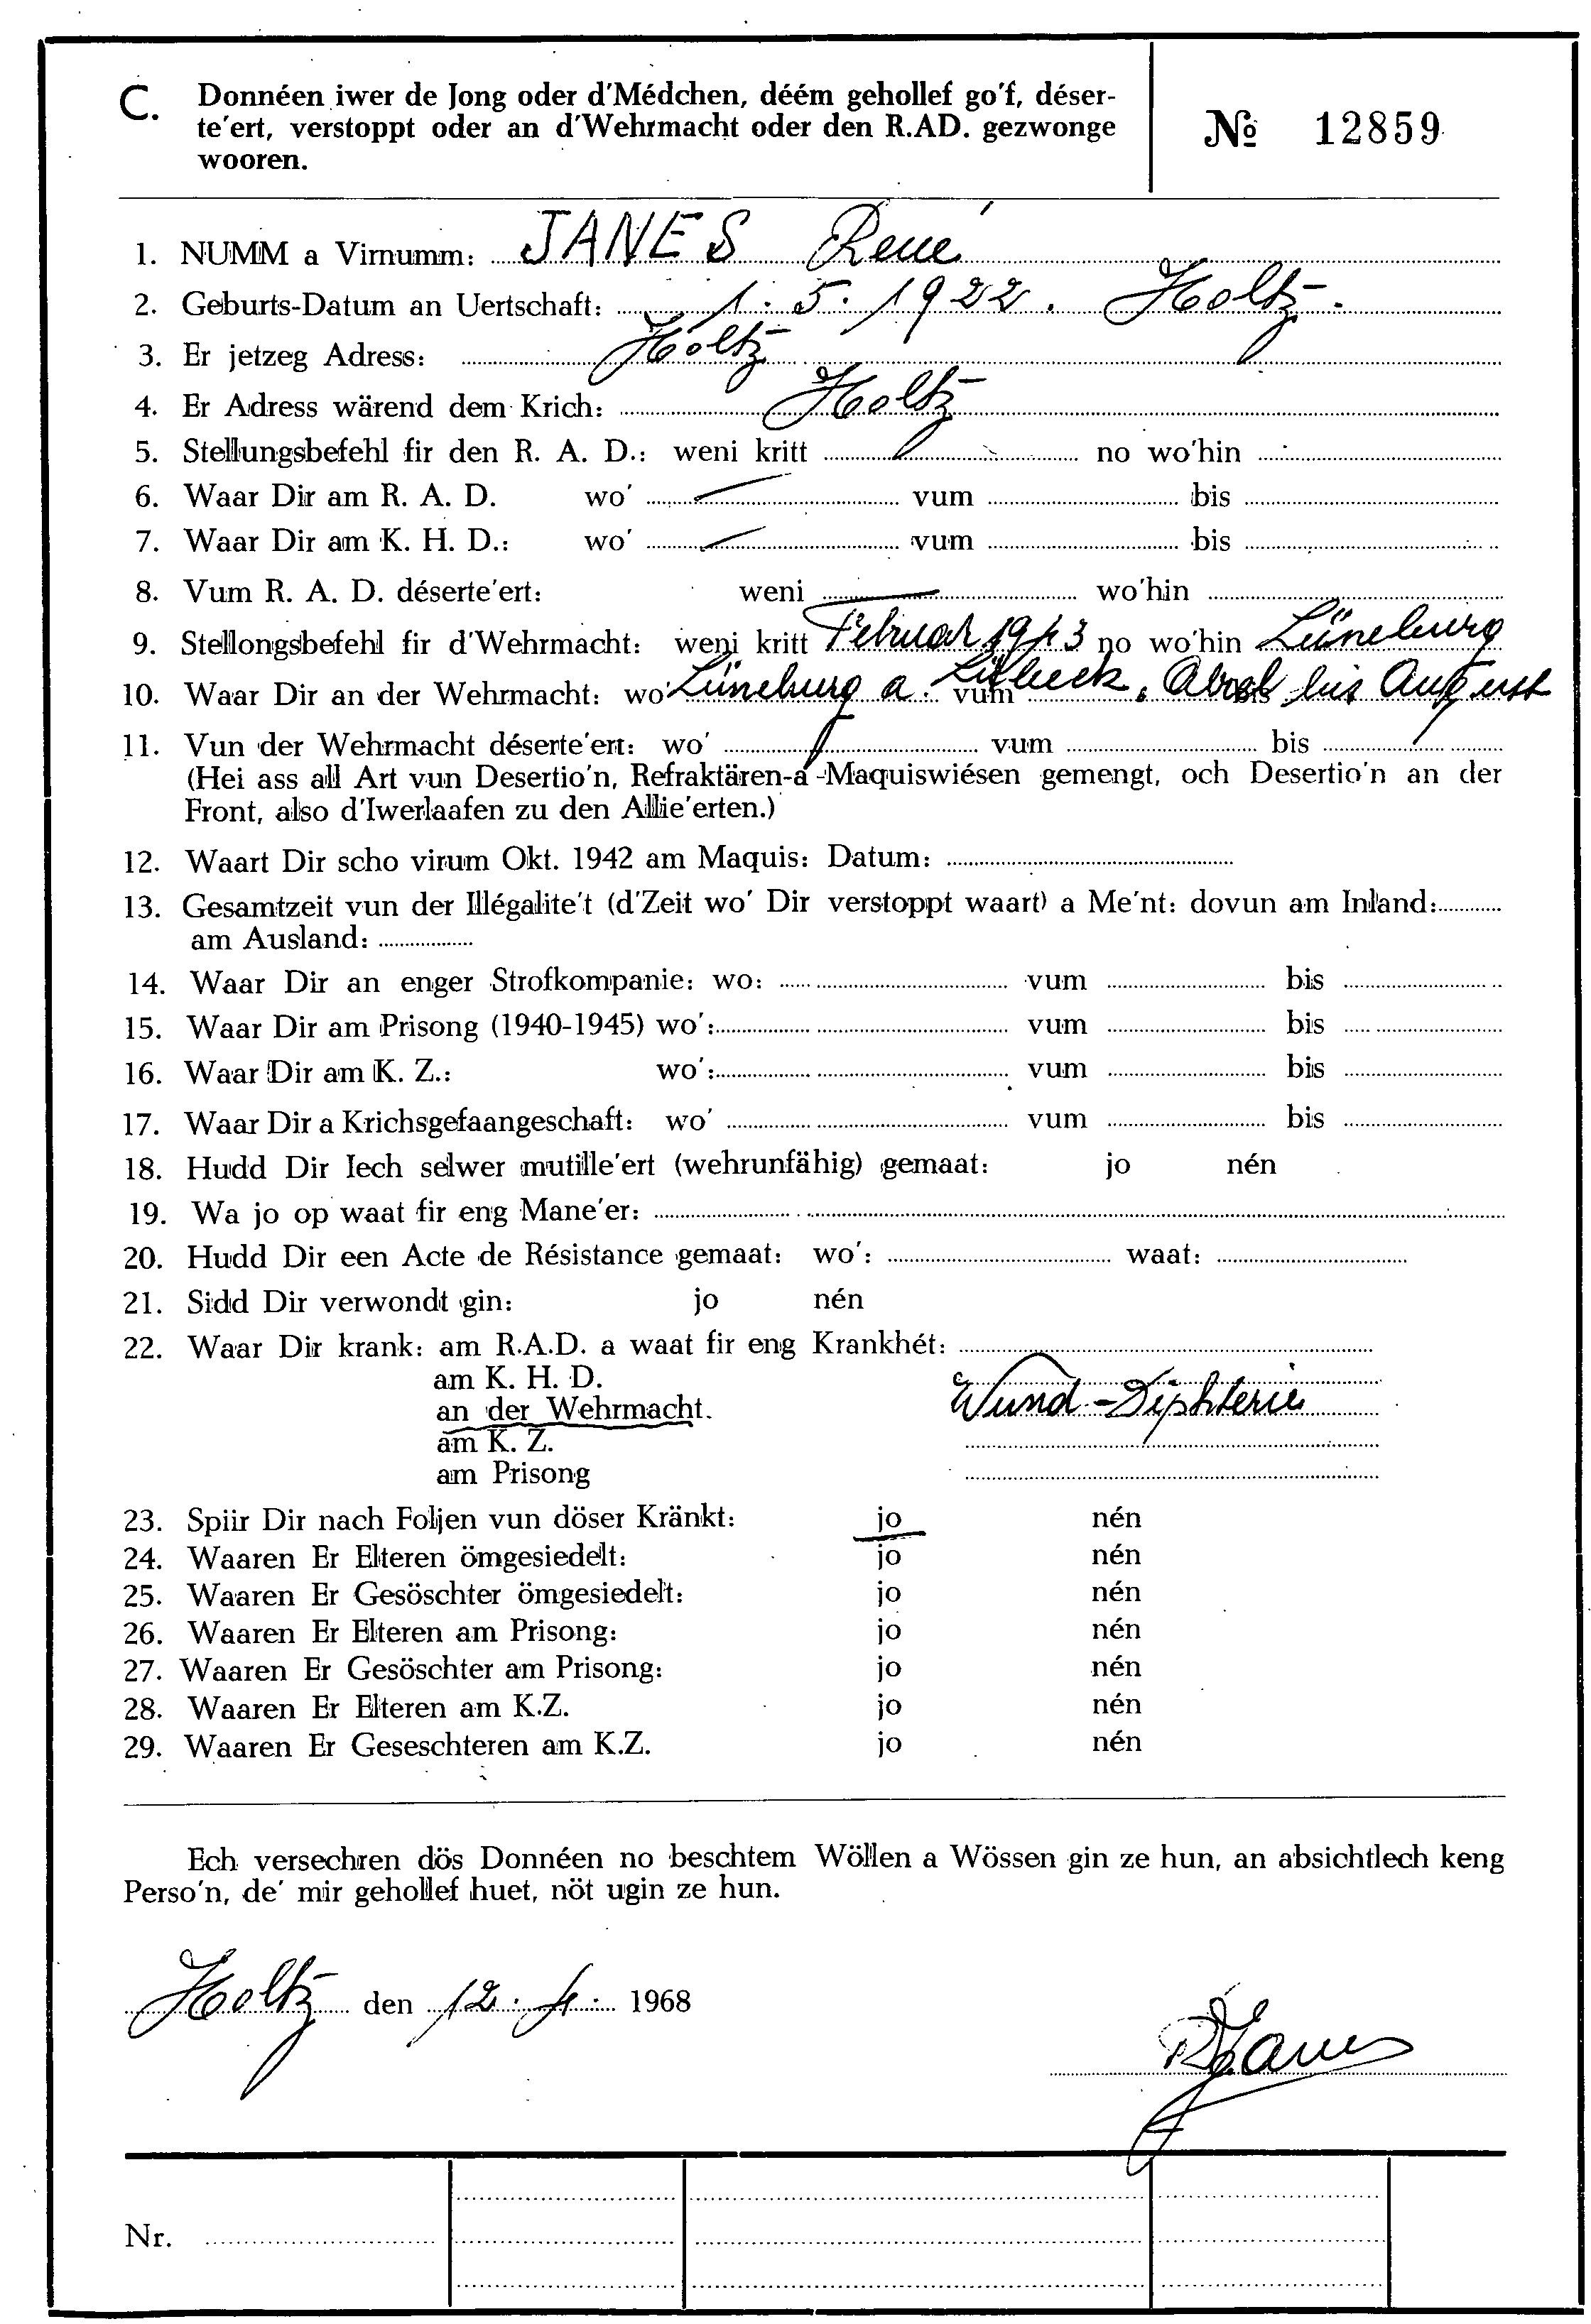 C. Donnéen iwer de Jong oder d'Médchen, déém gehollef go'f, déser-
te'ert, verstoppt oder an d'Wehrmacht oder den R.AD. gezwonge
wooren.
№ 12859
1. NUMM a Virnumm: JANES René
2. Geburts-Datum an Uertschaft: 1. 5. 1922. Holtz.
3. Er jetzeg Adress: Holtz
4. Er Adress wärend dem Krich: Holtz
5. Stellungsbefehl fir den R. A. D.: weni kritt no wo'hin
6. Waar Dir am R. A. D. wo' vum bis
7. Waar Dir am K. H. D.: wo' vum bis
8. Vum R. A. D. déserte'ert: weni wo'hin
9. Stellongsbefehl fir d'Wehrmacht: weni kritt Februar 1943 no wo'hin Lüneburg
10. Waar Dir an der Wehrmacht: wo' Lüneburg a vum Lübeck, bis bis August
11. Vun der Wehrmacht déserte'ert: wo' vum bis
(Hei ass all Art vun Desertio'n, Refraktären-a'-Maquiswiésen gemengt, och Desertio'n an der
Front, also d'Iwerlaafen zu den Allie'erten.)
12. Waart Dir scho virum Okt. 1942 am Maquis: Datum:
13. Gesamtzeit vun der Illégalite't (d'Zeit wo' Dir verstoppt waart) a Me'nt: dovun am Inland:
am Ausland:
14. Waar Dir an enger Strofkompanie: wo: vum bis
15. Waar Dir am Prisong (1940-1945) wo': vum bis
16. Waar Dir am K. Z.: wo': vum bis
17. Waar Dir a Krichsgefaangeschaft: wo' vum bis
18. Hudd Dir Iech selwer mutille'ert (wehrunfähig) gemaat: jo nén
19. Wa jo op waat fir eng Mane'er:
20. Hudd Dir een Acte de Résistance gemaat: wo': waat:
21. Sidd Dir verwondt gin: jo nén
22. Waar Dir krank: am R.A.D. a waat fir eng Krankhét:
am K. H. D.
an der Wehrmacht. Wund-Diphterie
am K. Z.
am Prisong
23. Spiir Dir nach Foljen vun döser Kränkt: jo nén
24. Waaren Er Elteren ömgesiedelt: jo nén
25. Waaren Er Gesöschter ömgesiedelt: jo nén
26. Waaren Er Elteren am Prisong: jo nén
27. Waaren Er Gesöschter am Prisong: jo nén
28. Waaren Er Elteren am K.Z. jo nén
29. Waaren Er Geseschteren am K.Z. jo nén
Ech versechren dös Donnéen no beschtem Wöllen a Wössen gin ze hun, an absichtlech keng
Perso'n, de' mir gehollef huet, nöt ugin ze hun.
Holtz den 12. 4. 1968
R Janes
Nr.